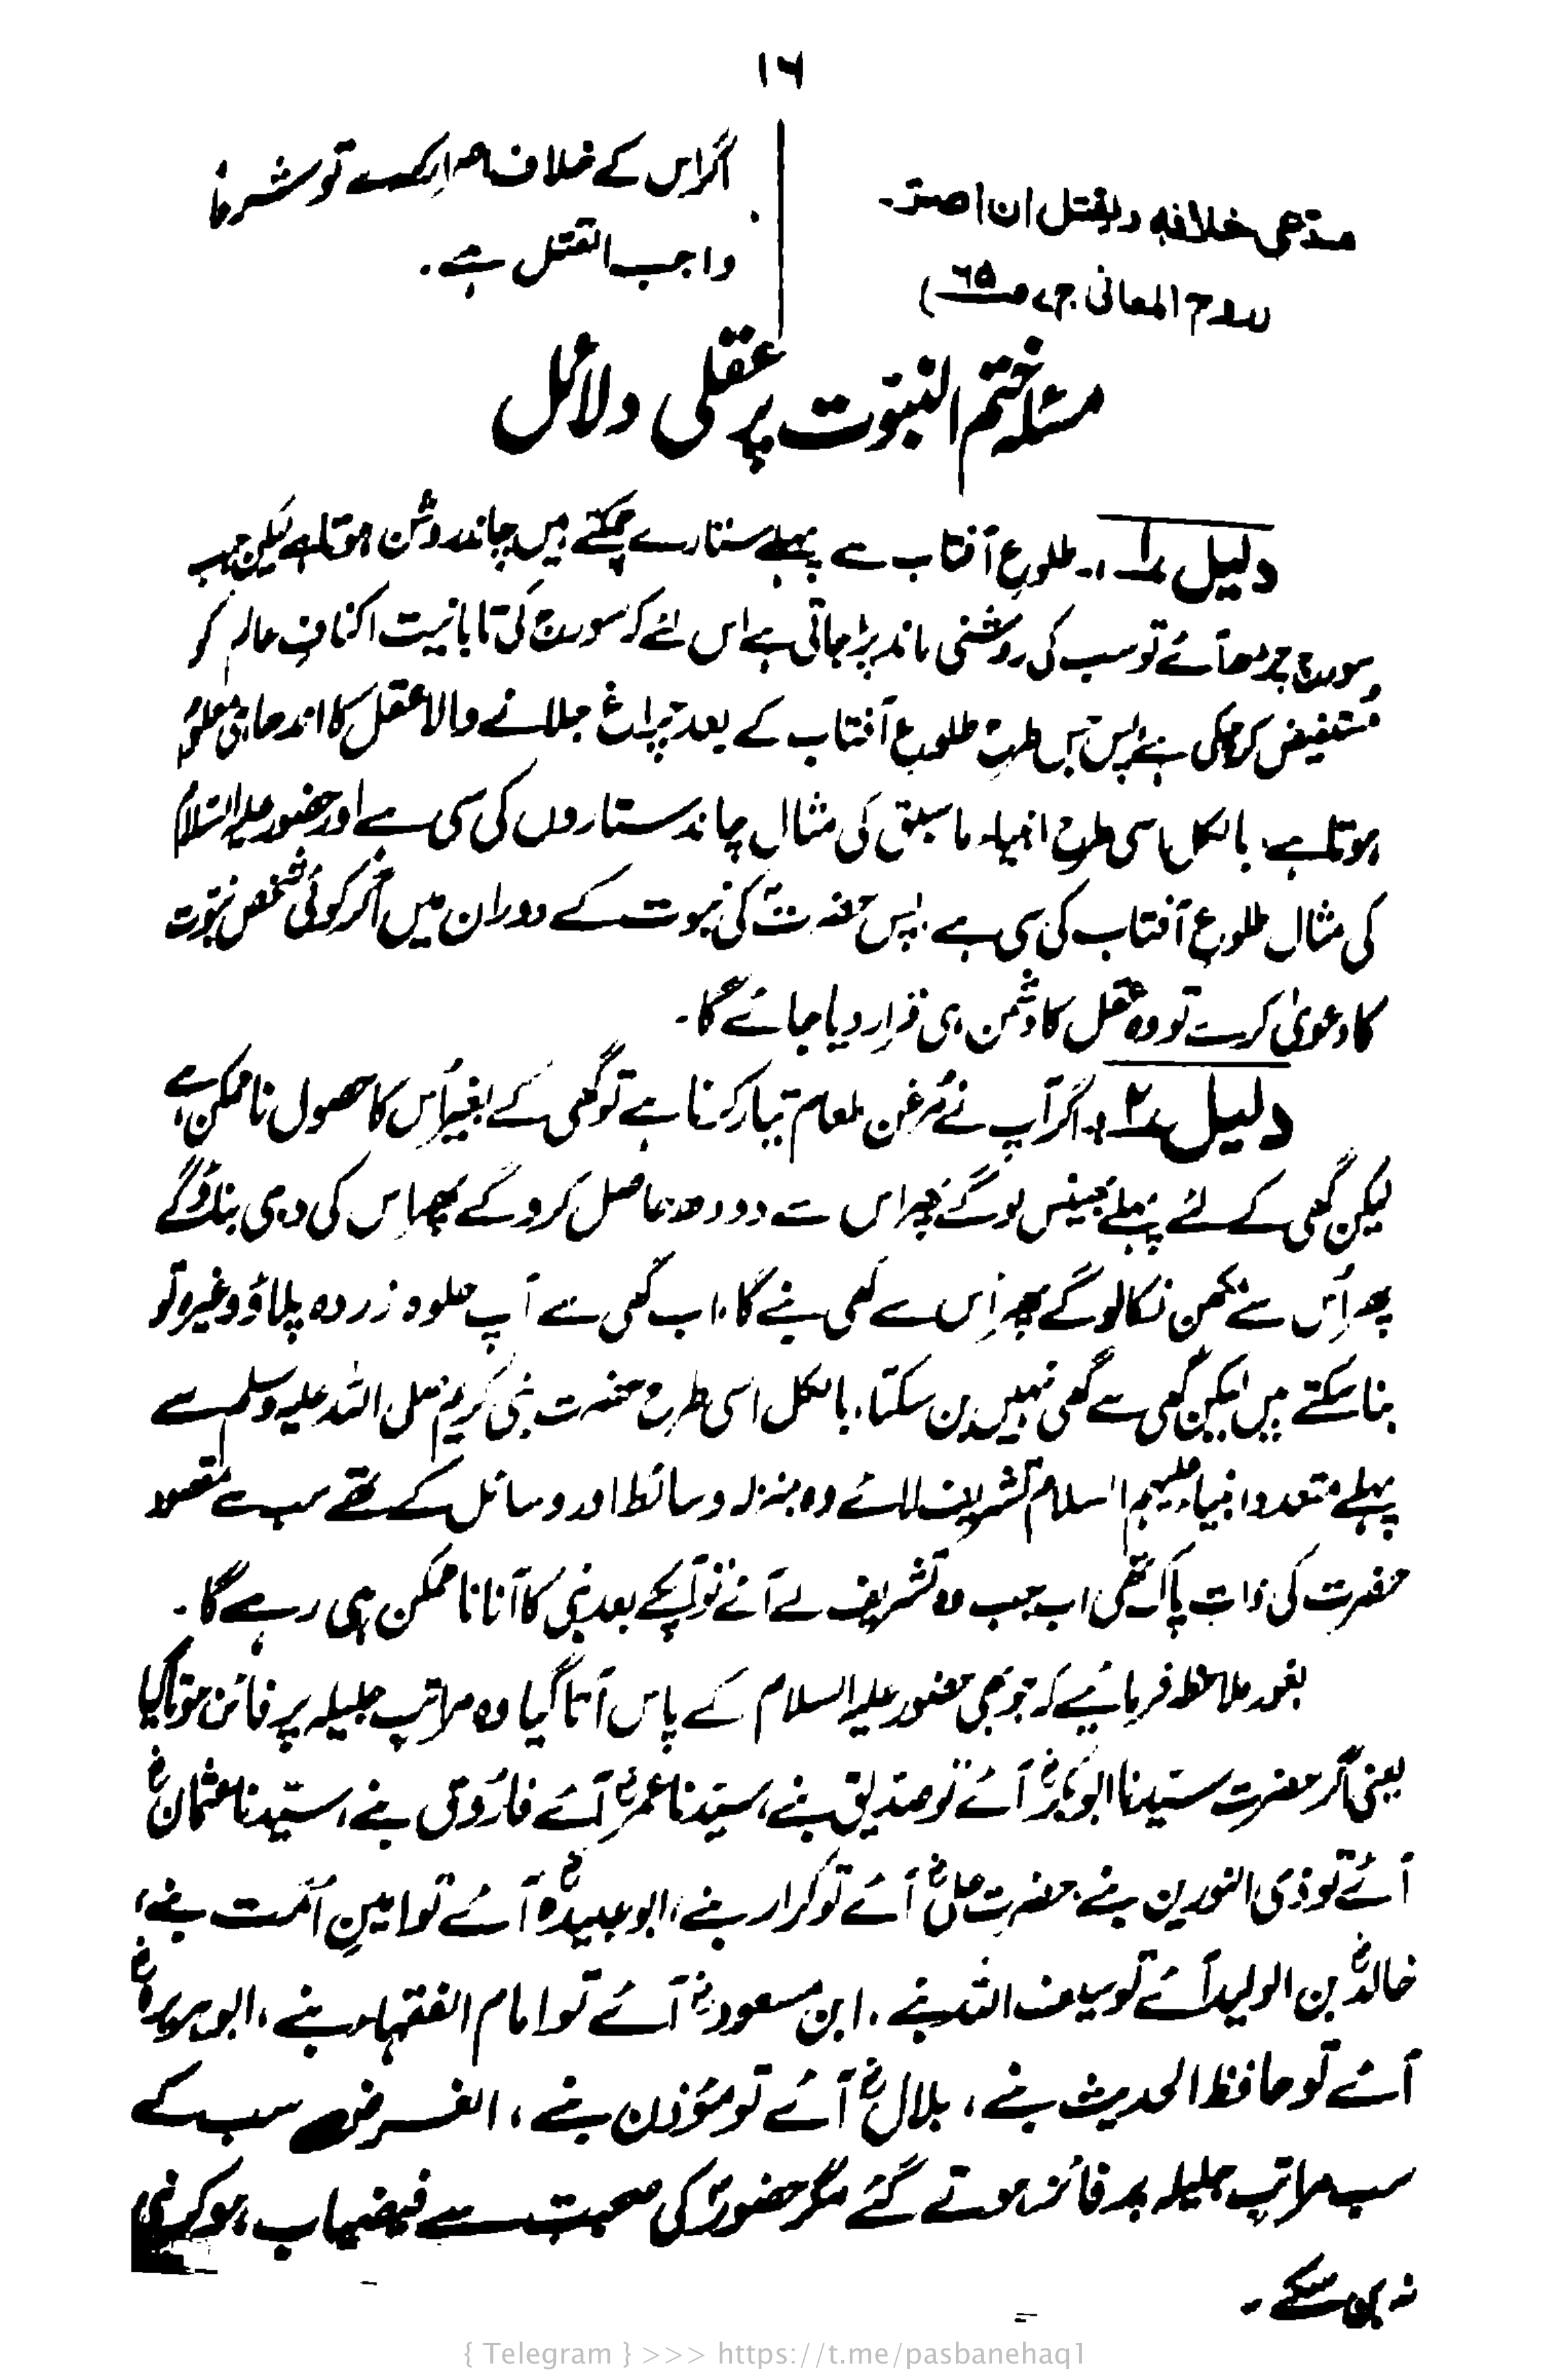 ۱۶
مدعی خلافہ ویقتل ان اصر۔
(روح المعانی ج۷ ص۶۵)
اگر اس کے خلاف اصرار کرے تو شرعاً
واجب القتل ہے۔
مسئلہ ختم النبوّت پر عقلی دلائل
دلیل ۱:۔ طلوعِ آفتاب سے پہلے ستارے چمکتے ہیں چاند روشن ہوتا ہے لیکن جب
سورج چڑھ آئے تو سب کی روشنی ماند پڑ جاتی ہے اس لئے کہ سورج کی تابانیت اکنافِ عالم کو
مُستفیض کر چکی ہے پس جس طرح طلوعِ آفتاب کے بعد چراغ جلانے والا عقل کا اندھا ہی معلوم
ہوتا ہے بالکل اسی طرح انبیاء ماسبق کی مثال چاند ستاروں کی سی ہے اور حضور علیہ السّلام
کی مثال طلوعِ آفتاب کی سی ہے پس حضرتؐ کی نبوت کے دوران میں اگر کوئی شخص نبوّت
کا دعویٰ کرے تو وہ عقل کا دُشمن ہی قرار دیا جائے گا۔
دلیل ۲:۔ اگر آپ نے مُرغن طعام تیار کرنا ہے تو گھی کے بغیر اُس کا حصول ناممکن ہے
لیکن گھی کے لئے پہلے بھینس لو گے پھر اس سے دودھ حاصل کرو گے پھر اس کی دہی بناؤ گے
پھر اُس سے مکھن نکالو گے پھر اِس سے گھی بنے گا، اب گھی سے آپ حلوہ زردہ پلاؤ وغیرہ تو
بنا سکتے ہیں لیکن گھی سے گھی نہیں بن سکتا، بالکل اسی طرح حضرت نبی کریم صلی اللہ علیہ وسلم سے
پہلے متعدد انبیاء علیہم السلام تشریف لائے وہ بمنزلہ وسائط اور وسائل کے تھے سب سے مقصود
حضرت کی ذات پاک تھی اب جب وہ تشریف لے آئے تو آپکے بعد نبی کا آنا ناممکن ہی رہے گا۔
بغور ملاحظہ فرمائیے کہ جو بھی حضور علیہ السلام کے پاس آتا گیا وہ مراتبِ جلیلہ پر فائز ہوتا گیا
یعنی اگر حضرت سیّدنا ابوبکرؓ آئے تو صدّیق بنے، سیّدنا عمرؓ آئے فارُوق بنے، سیّدنا عثمانؓ
آئے تو ذی النورین بنے، حضرت علیؓ آئے تو کرار بنے، ابوعبیدہؓ آئے تو امینِ اُمت بنے،
خالدؓ بن الولید آئے تو سیف اللہ بنے، ابن مسعودؓ آئے تو امام الفقہاء بنے، ابوہریرہؓ
آئے تو حافظ الحدیث بنے، بلالؓ آئے تو مؤذن بنے، الغرض سب کے
سب مراتبِ جلیلہ پر فائز ہوتے گئے مگر حضورؐ کی صحبت سے فیضیاب ہو کر نبی
نہ بن سکے۔
{ Telegram } >>> https://t.me/pasbanehaq1